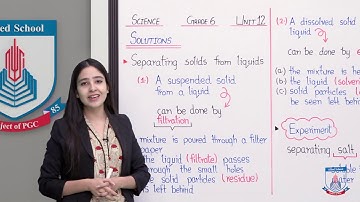 ed School
85
ject of PGC
SCIENCE GRADE 6 UNIT 12
SOLUTIONS
Separating solids from liquids
(1.) A suspended solid
from a liquid
can be done by
filtration
mixture is poured through a filter
paper
the liquid (filtrate) passes
through the small holes
solid particles (residue)
is left behind
(2.) A dissolved solid
liquid
can be done by
(a) the mixture is he
(b) the liquid (solve
(c) solid particles
be seen left behind
Experiment
separating salt